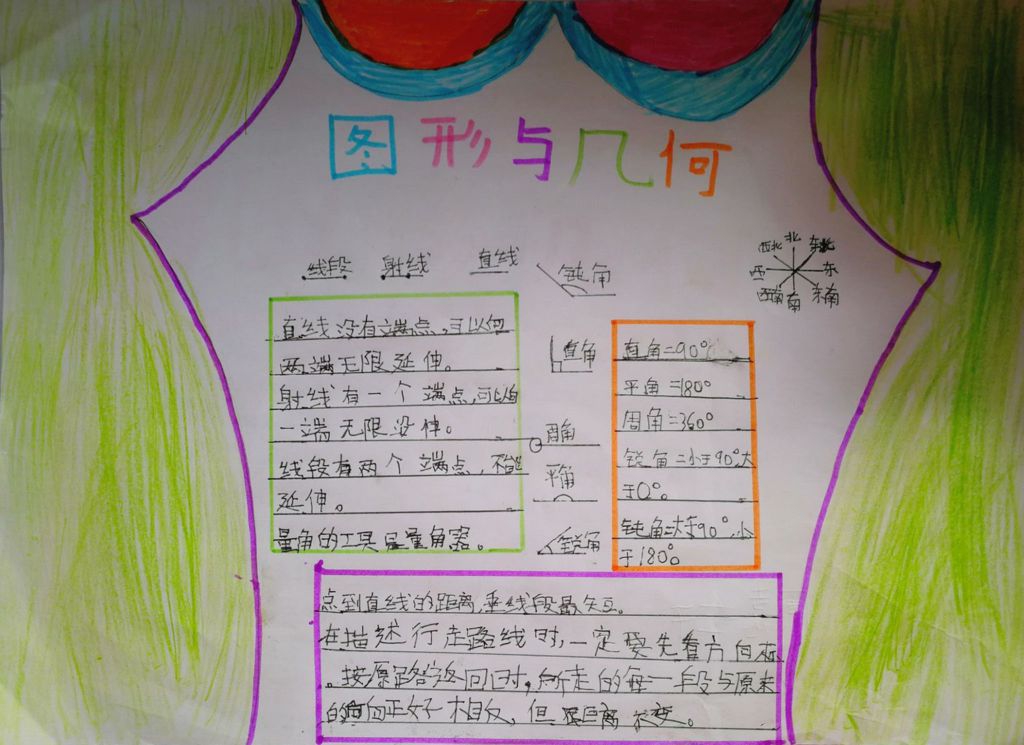 图形与几何
线段 射线 直线
钝角
直角
周角
平角
锐角
北
东北
东
东南
南
西南
西
西北
直线没有端点,可以向
两端无限延伸。
射线有一个端点,可以向
一端无限延伸。
线段有两个端点,不能
延伸。
量角的工具是量角器。
直角=90°
平角=180°
周角=360°
锐角=小于90°大
于0°。
钝角=大于90°,小
于180°。
点到直线的距离,垂线段最短。
在描述行走路线时,一定要先看方向标
。按原路返回时,所走的每一段与原来
的方向正好相反,但距离不变。